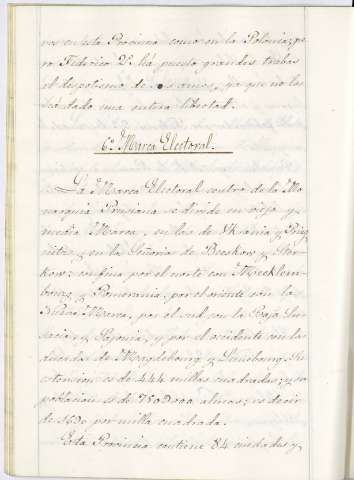 nos en esta Provincia como en la Polonia; pe
ro Federico 2º há puesto grandes trabas
al despotismo de los amos, ya que no les
há dado una entera libertad.
6º Marca Electoral.
La Marca Electoral centro de la Mo
narquia Prusiana se divide en vieja y
media Marca, en las de Ukrania y Prig
nitz y en la Señoria de Beeskow y Stor
kow: confina por el norte con Mecklem
bourg y Pomerania, por el oriente con la
Nueva Marca, por el sud con la Baja Lu
sacia y Sajonia, y por el occidente con los
ducados de Magdebourg y Lunebourg. Su
extension es de 444 millas cuadradas; y su
poblacion de 750 000 almas; es decir
de 1690 por milla cuadrada.
Esta Provincia contiene 84 ciudades y